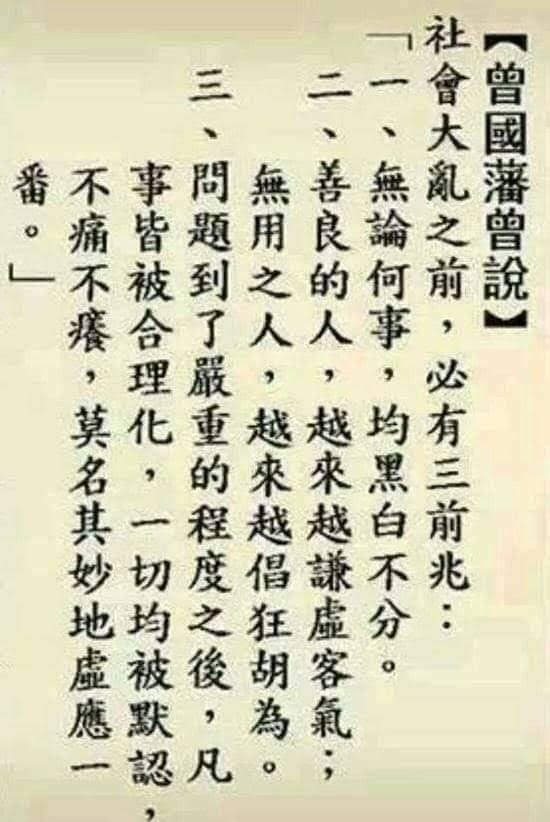 【曾國藩曾說】
社會大亂之前，必有三前兆：
「一、無論何事，均黑白不分。
二、善良的人，越來越謙虛客氣；
無用之人，越來越倡狂胡為。
三、問題到了嚴重的程度之後，凡
事皆被合理化，一切均被默認，
不痛不癢，莫名其妙地虛應一
番。」